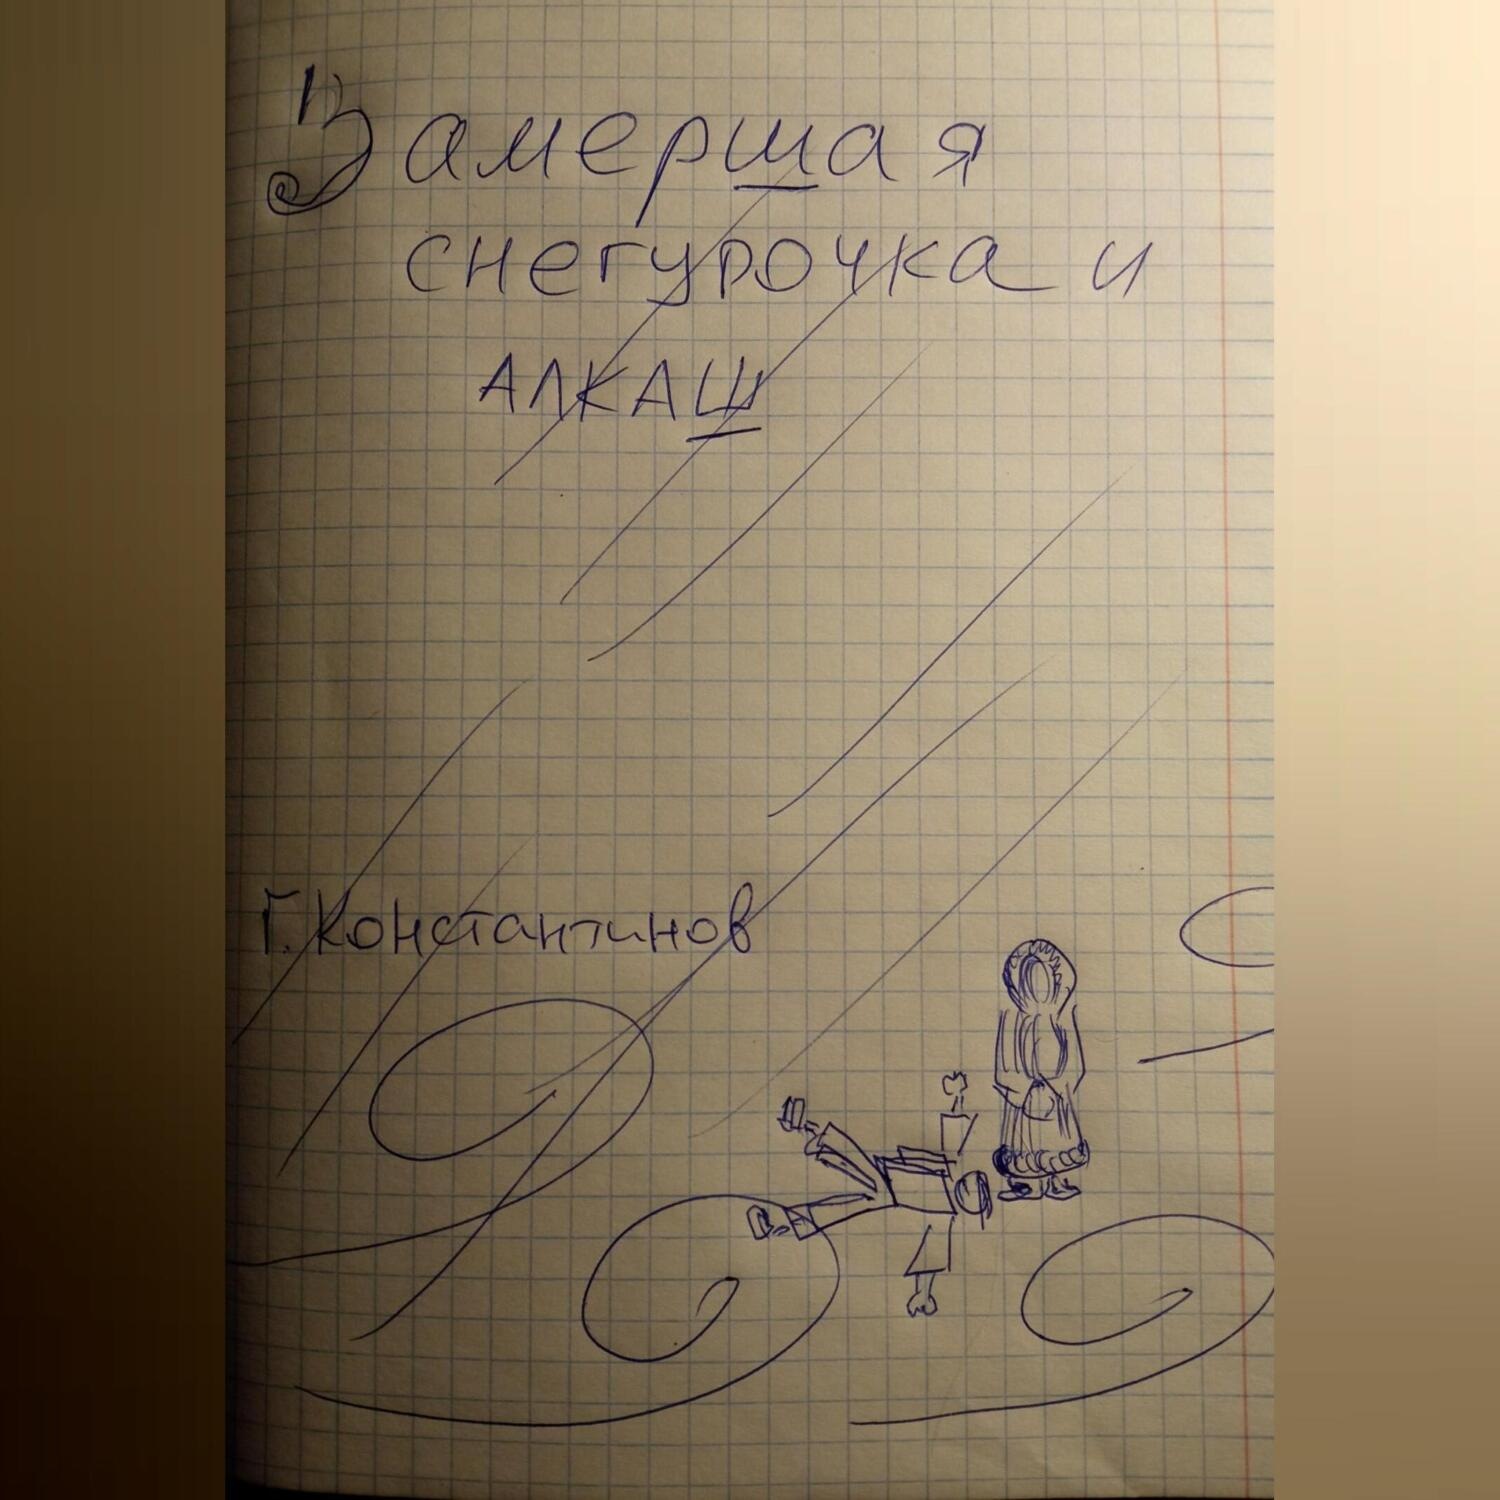 Замершая
снегурочка и
АЛКАШ
Г. Константинов